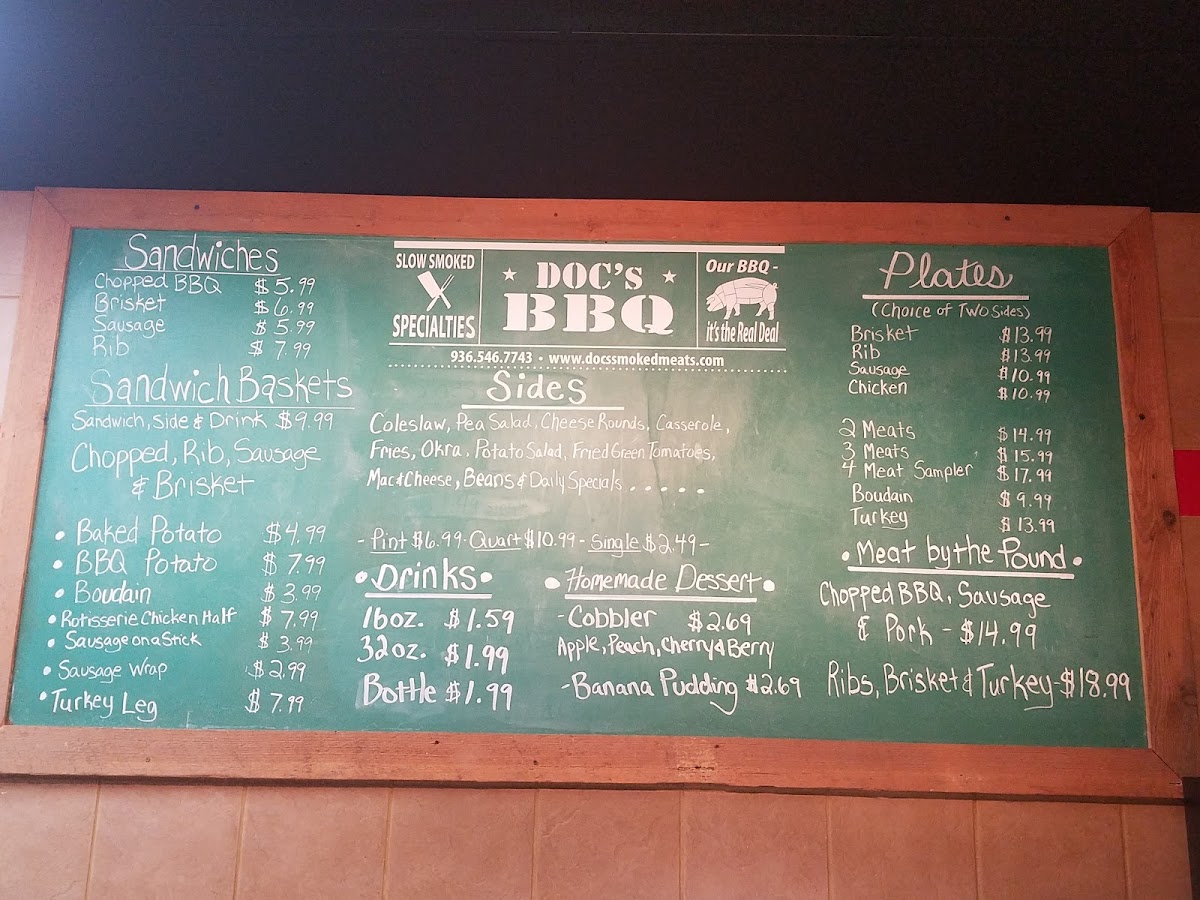 Sandwiches
Chopped BBQ $5.99
Brisket $6.99
Sausage $5.99
Rib $7.99
Sandwich Baskets
Sandwich, Side & Drink $9.99
Chopped, Rib, Sausage
& Brisket
• Baked Potato $4.99
• BBQ Potato $7.99
• Boudain $3.99
• Rotisserie Chicken Half $7.99
• Sausage on a Stick $3.99
• Sausage Wrap $2.99
• Turkey Leg $7.99
SLOW SMOKED
SPECIALTIES
DOC'S
BBQ
Our BBQ -
it's the Real Deal
936.546.7743 • www.docssmokedmeats.com
Sides
Coleslaw, Pea Salad, Cheese Rounds, Casserole,
Fries, Okra, Potato Salad, Fried Green Tomatoes,
Mac & Cheese, Beans & Daily Specials . . . . .
- Pint $6.99 - Quart $10.99 - Single $2.49 -
• Drinks •
16oz. $1.59
32oz. $1.99
Bottle $1.99
• Homemade Dessert •
- Cobbler $2.69
Apple, Peach, Cherry & Berry
- Banana Pudding $2.69
Plates
(Choice of Two Sides)
Brisket $13.99
Rib $13.99
Sausage $10.99
Chicken $10.99
2 Meats $14.99
3 Meats $15.99
4 Meat Sampler $17.99
Boudain $9.99
Turkey $13.99
• Meat by the Pound •
Chopped BBQ, Sausage
& Pork - $14.99
Ribs, Brisket & Turkey - $18.99